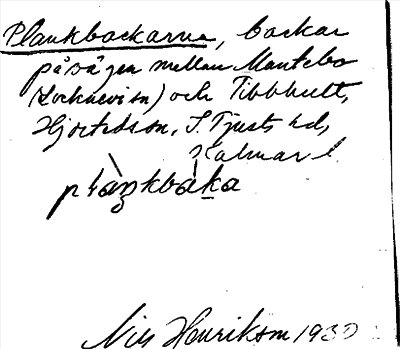 Plankbackarna, backar
på vägen mellan Mantebo
(Locknevi sn) och Tibbhult,
Hjorteds sn, S. Tjusts hd,
Kalmar l.
plàŋkbáka
Nils Henrikson 1930